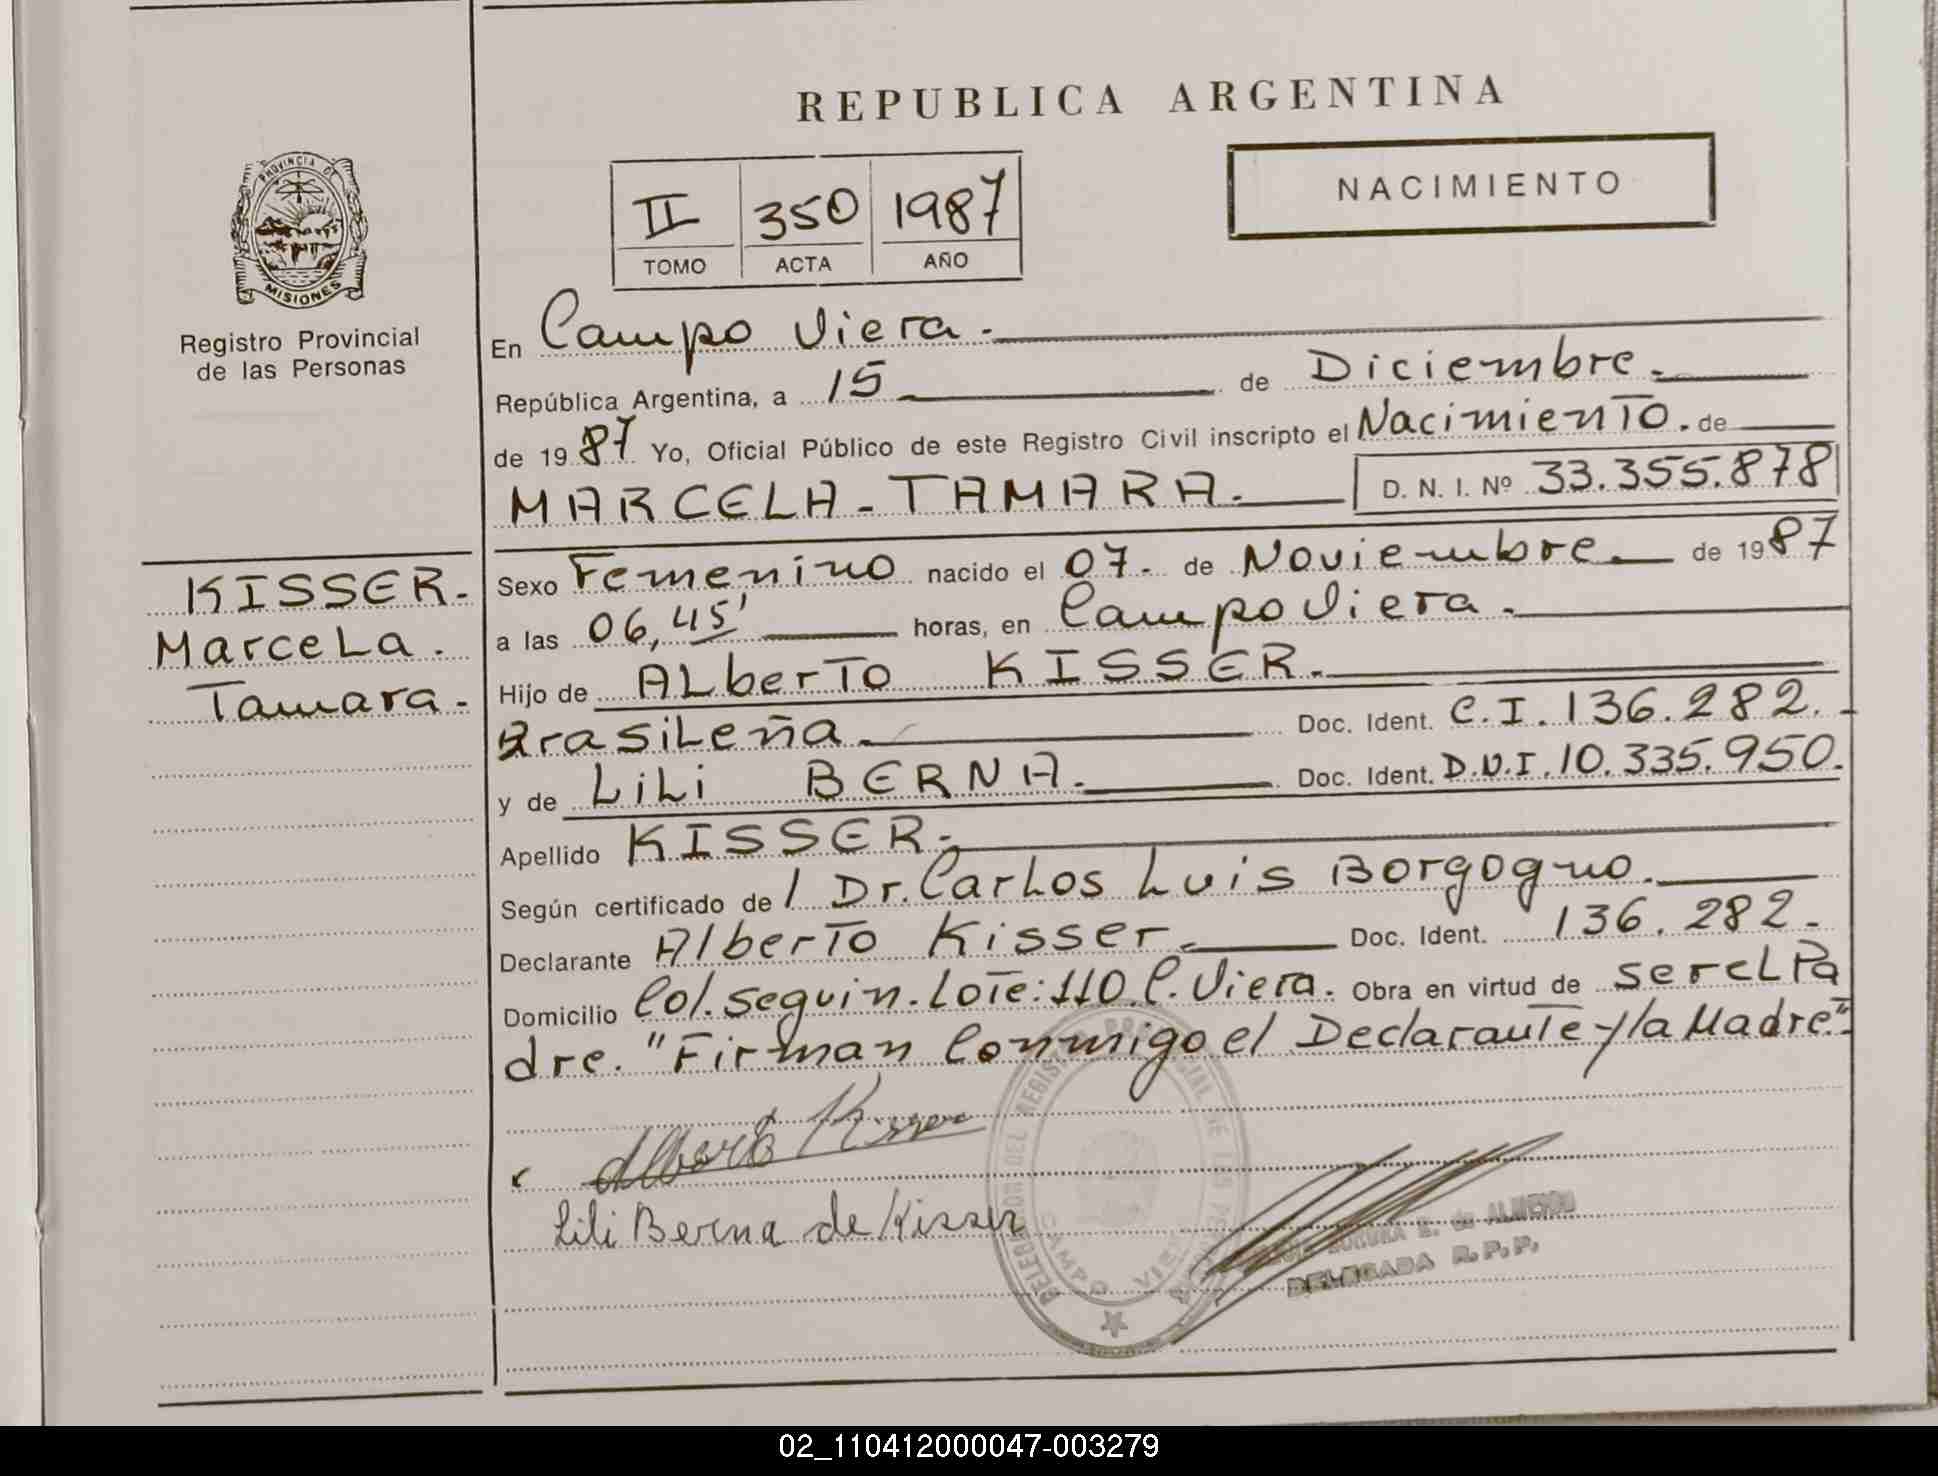 REPUBLICA ARGENTINA
PROVINCIA DE
MISIONES
Registro Provincial
de las Personas
II 350 1987
TOMO ACTA AÑO
NACIMIENTO
En Campo Viera.
República Argentina, a 15 de Diciembre.
de 1987 Yo, Oficial Público de este Registro Civil inscripto el Nacimiento. de
MARCELA-TAMARA. D. N. I. Nº 33.355.878
KISSER.
Marcela.
Tamara.
Sexo Femenino nacido el 07. de Noviembre. de 1987
a las 06,45' horas, en Campo Viera.
Hijo de Alberto KISSER.
Brasileña. Doc. Ident. C.I. 136.282.
y de Lili BERNA. Doc. Ident. D.N.I. 10.335.950.
Apellido KISSER.
Según certificado de l Dr. Carlos Luis Borgogno.
Declarante Alberto Kisser. Doc. Ident. 136.282.
Domicilio Col. Seguin. Lote: 110 C. Viera. Obra en virtud de ser el Pa
dre. "Firman Conmigo el Declarante y la Madre".
Alberto Kisser
Lili Berna de Kisser
DEL REGISTRO PROVINCIAL DE LAS
CAMPO VIERA
DE ALMEIDA
DELEGADA R.P.P.
02_110412000047-003279